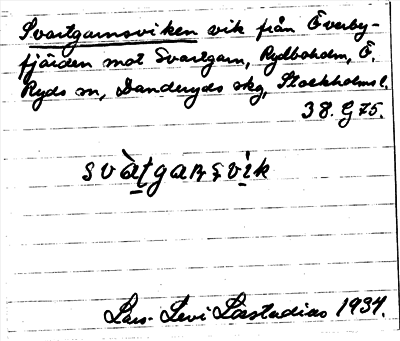 Svartgarnsviken vik från Överby-
fjärden mot Svartgarn, Rydboholm, Ö.
Ryds sn, Danderyds skg, Stockholms l.
38. G 75.
svàṭgaṇṣvìk
Lars-Levi Læstadius 1934.